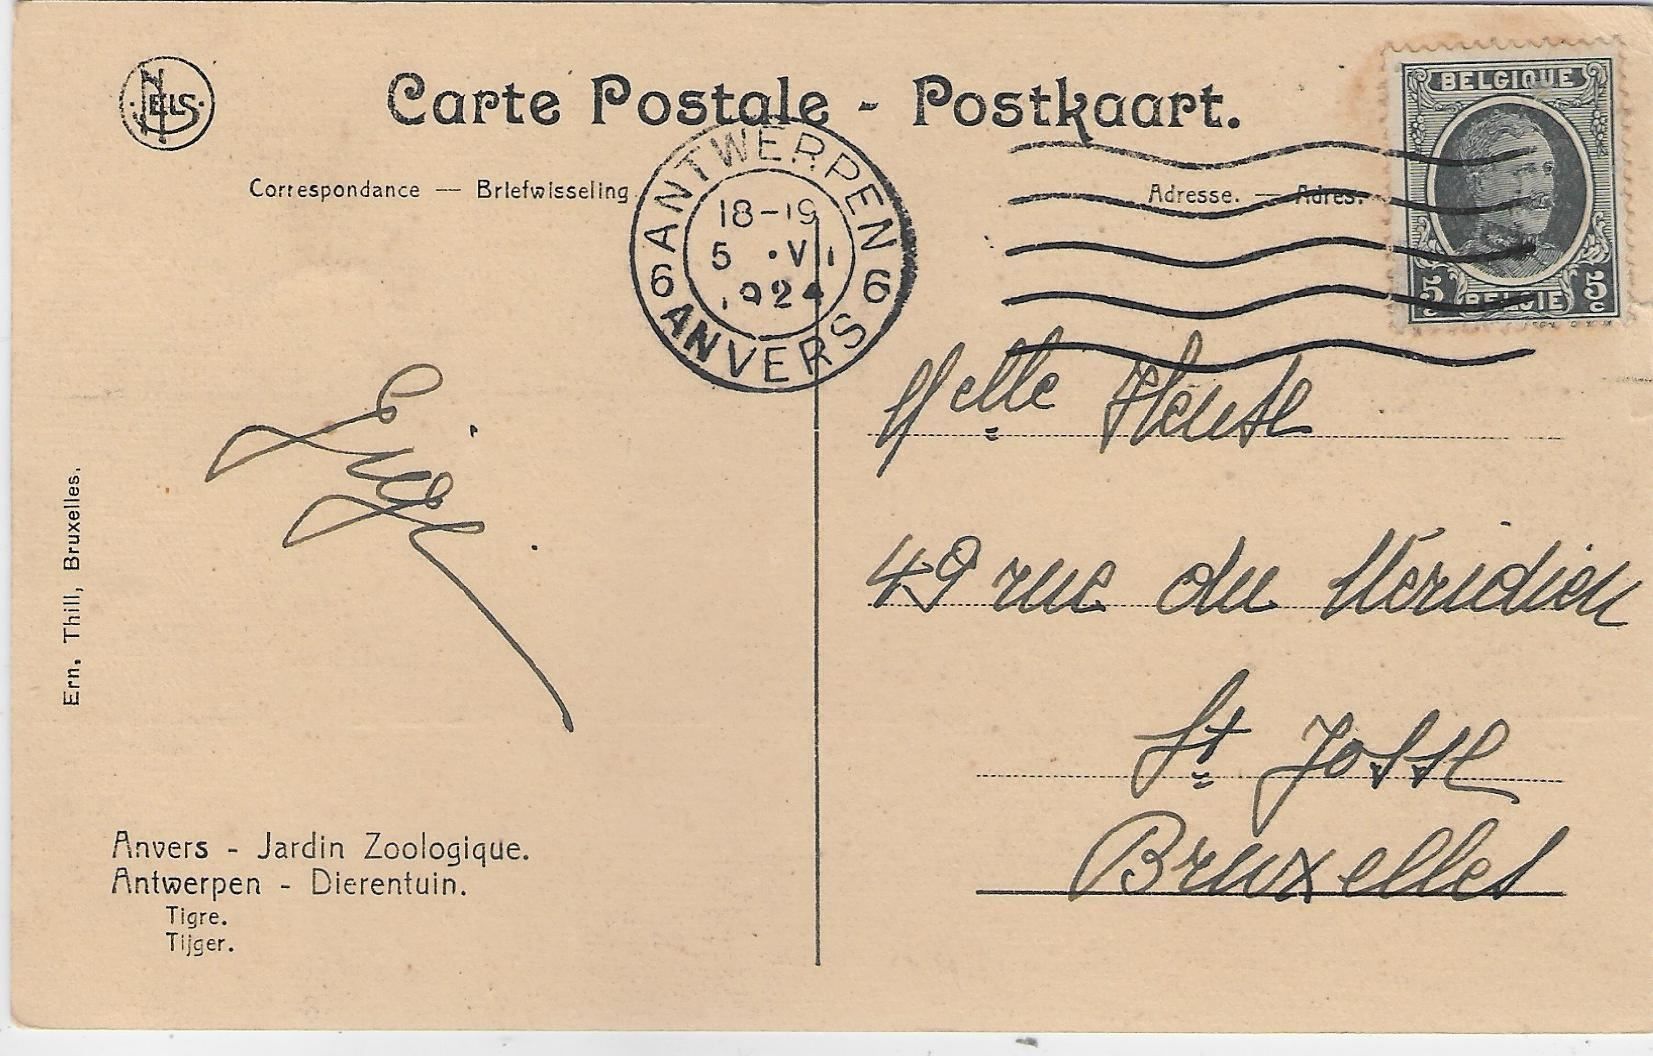 NELS
Carte Postale - Postkaart.
Correspondance — Briefwisseling
Adresse. — Adres.
BELGIQUE
5c BELGIE 5c
ANTWERPEN
18-19
5 · VI
1924
6 6
ANVERS
Melle Heuse
49 rue du Méridien
St Josse
Bruxelles
Ern. Thill, Bruxelles.
Anvers - Jardin Zoologique.
Antwerpen - Dierentuin.
Tigre.
Tijger.